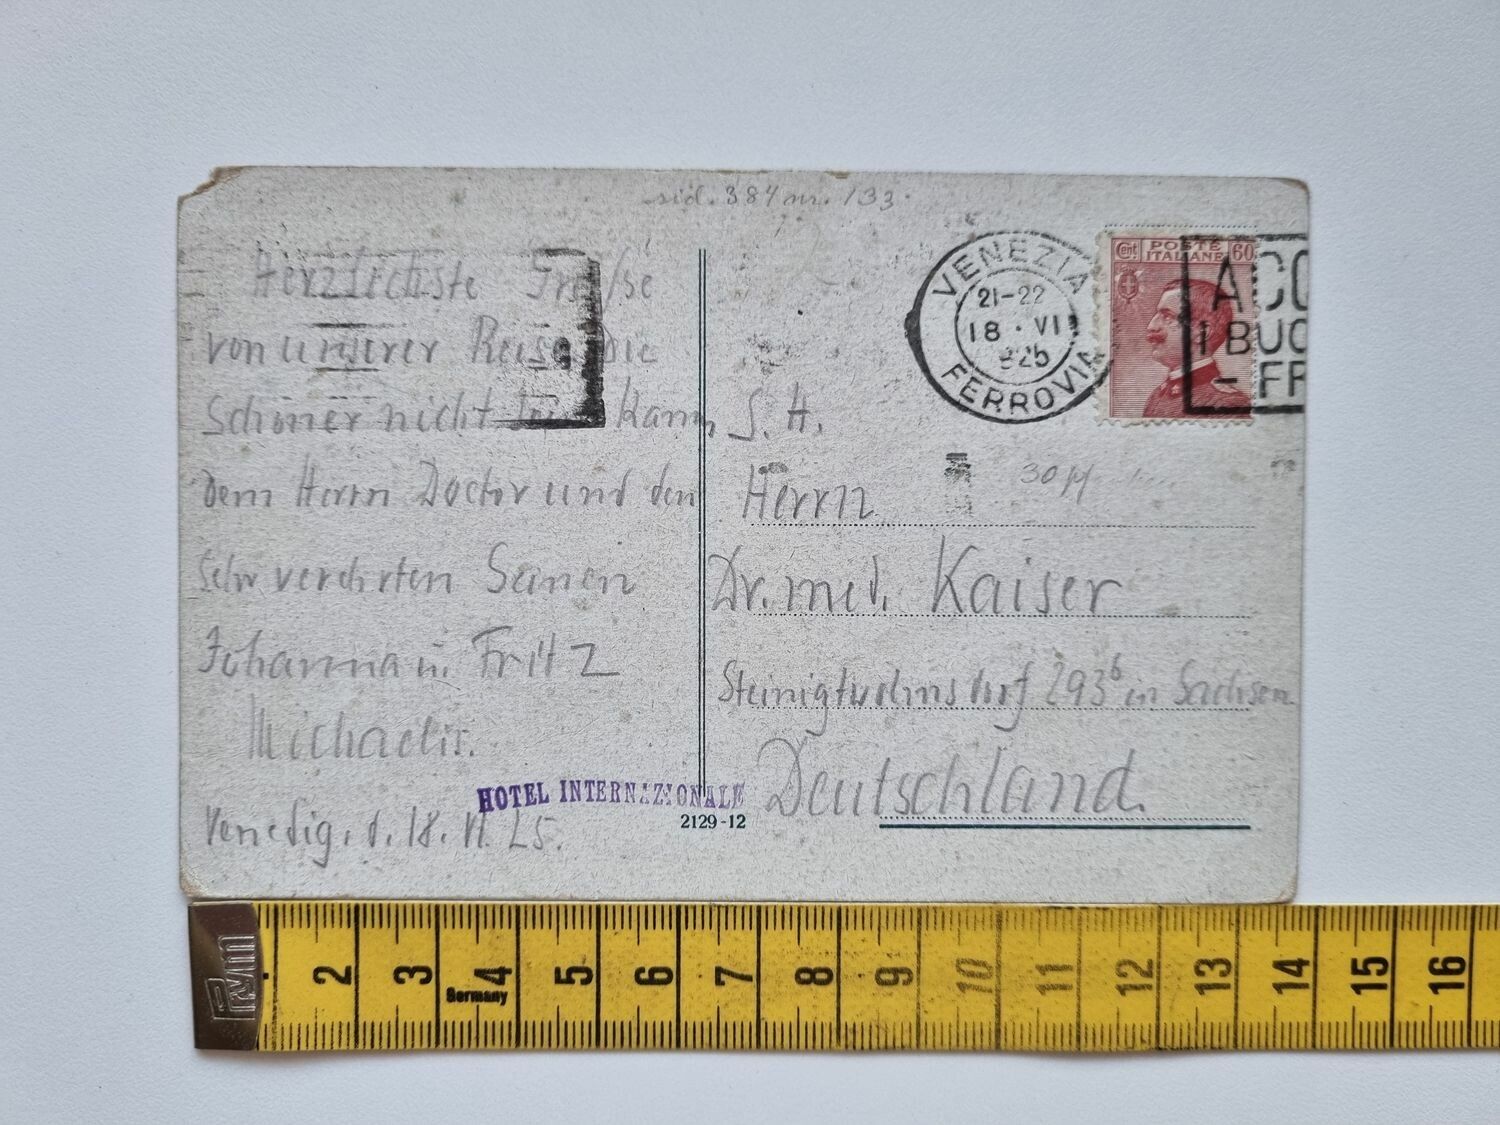 sid. 384 nr. 133.
Herzlichste Grüße
von unserer Reise. Die
Schöner nicht sein kann,
Dem Herrn Doctor und den
Sehr verehrten Seinen
Johanna u. Fritz
Michaelis.
Venedig, d. 18. VI. 25.
HOTEL INTERNAZIONALE
2129-12
VENEZIA
21-22
18 · VI
925
FERROVIA
Cent. POSTE ITALIANE 60
ACQ
I BUO
- FR
S. H.
30 pf
Herrn
Dr. med. Kaiser
Steinigtwolmsdorf 293b in Sachsen
Deutschland.
PRYM
2 3 4 5 6 7 8 9 10 11 12 13 14 15 16
Germany